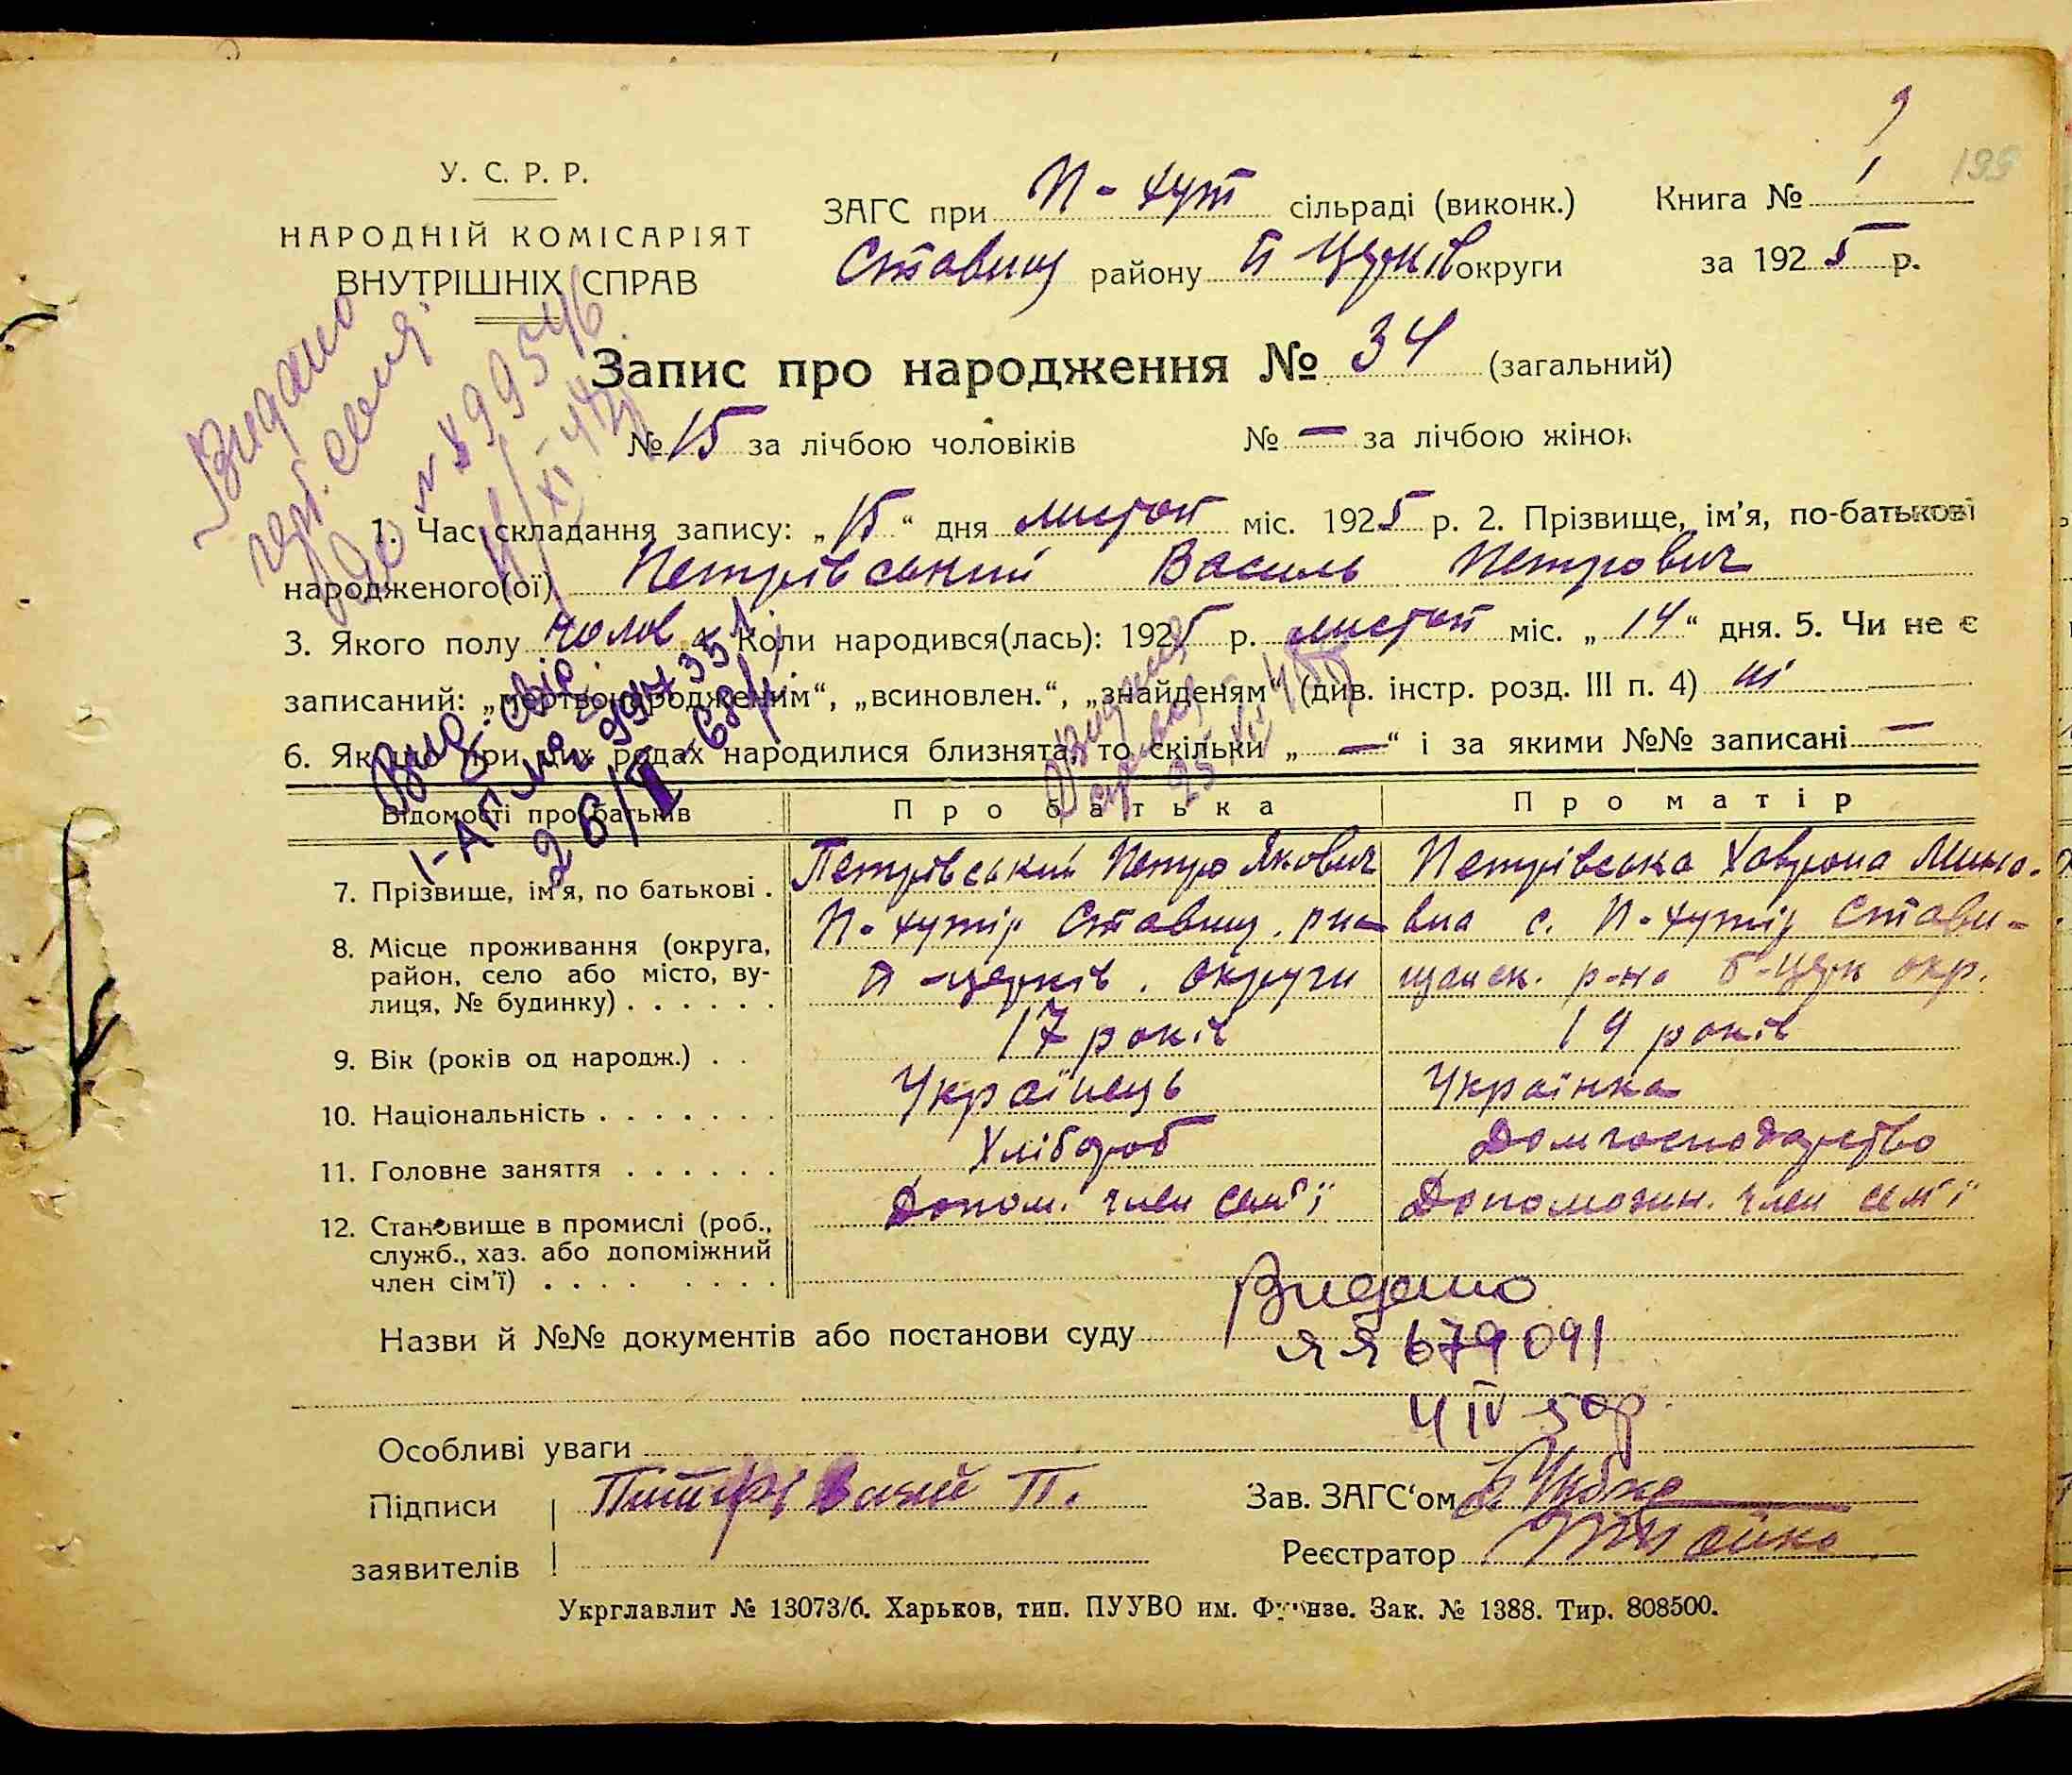 У. С. Р. Р.
НАРОДНІЙ КОМІСАРІЯТ
ВНУТРІШНІХ СПРАВ
ЗАГС при П-хут сільраді (виконк.)
Ставищ району Б Церків округи
Книга № 1
за 1925 р.
199
Запис про народження № 34 (загальний)
№ 15 за лічбою чоловіків № — за лічбою жінок
1. Час складання запису: „15“ дня листоп міс. 1925 р. 2. Прізвище, ім'я, по-батькові
народженого(ої) Петрівський Василь Петрович
3. Якого полу чолов 4. Коли народився(лась): 1925 р. листоп міс. „14“ дня. 5. Чи не є
записаний: „мертвонародженим“, „всиновлен.“, „знайденям“ (див. інстр. розд. III п. 4) ні
6. Якщо при цих родах народилися близнята, то скільки „—“ і за якими №№ записані —
Видано
26/
Відомості про батьків Про батька Про матір
7. Прізвище, ім'я, по батькові . Петрівський Петро Якович Петрівська Хаврона Мино-
8. Місце проживання (округа, район, село або місто, вулиця, № будинку) . . . . . . П-хутір Ставищ. р-на Б-церків. округи вна с. П-хутір Стави-
щанск. р-на Б-церк окр.
9. Вік (років од народж.) . . 17 років 19 років
10. Національність . . . . . . . Українець Українка
11. Головне заняття . . . . . . Хлібороб Домгосподарство
12. Становище в промислі (роб., служб., хаз. або допоміжний член сім'ї) . . . . . . . . Допом. член сем'ї Допоможн. член сем'ї
Видано
Назви й №№ документів або постанови суду ЯЯ 679091
4 IV 50р.
Особливі уваги
Підписи
заявителів
П.
Зав. ЗАГС'ом
Реєстратор
Укрглавлит № 13073/б. Харьков, тип. ПУУВО им. Фрунзе. Зак. № 1388. Тир. 808500.